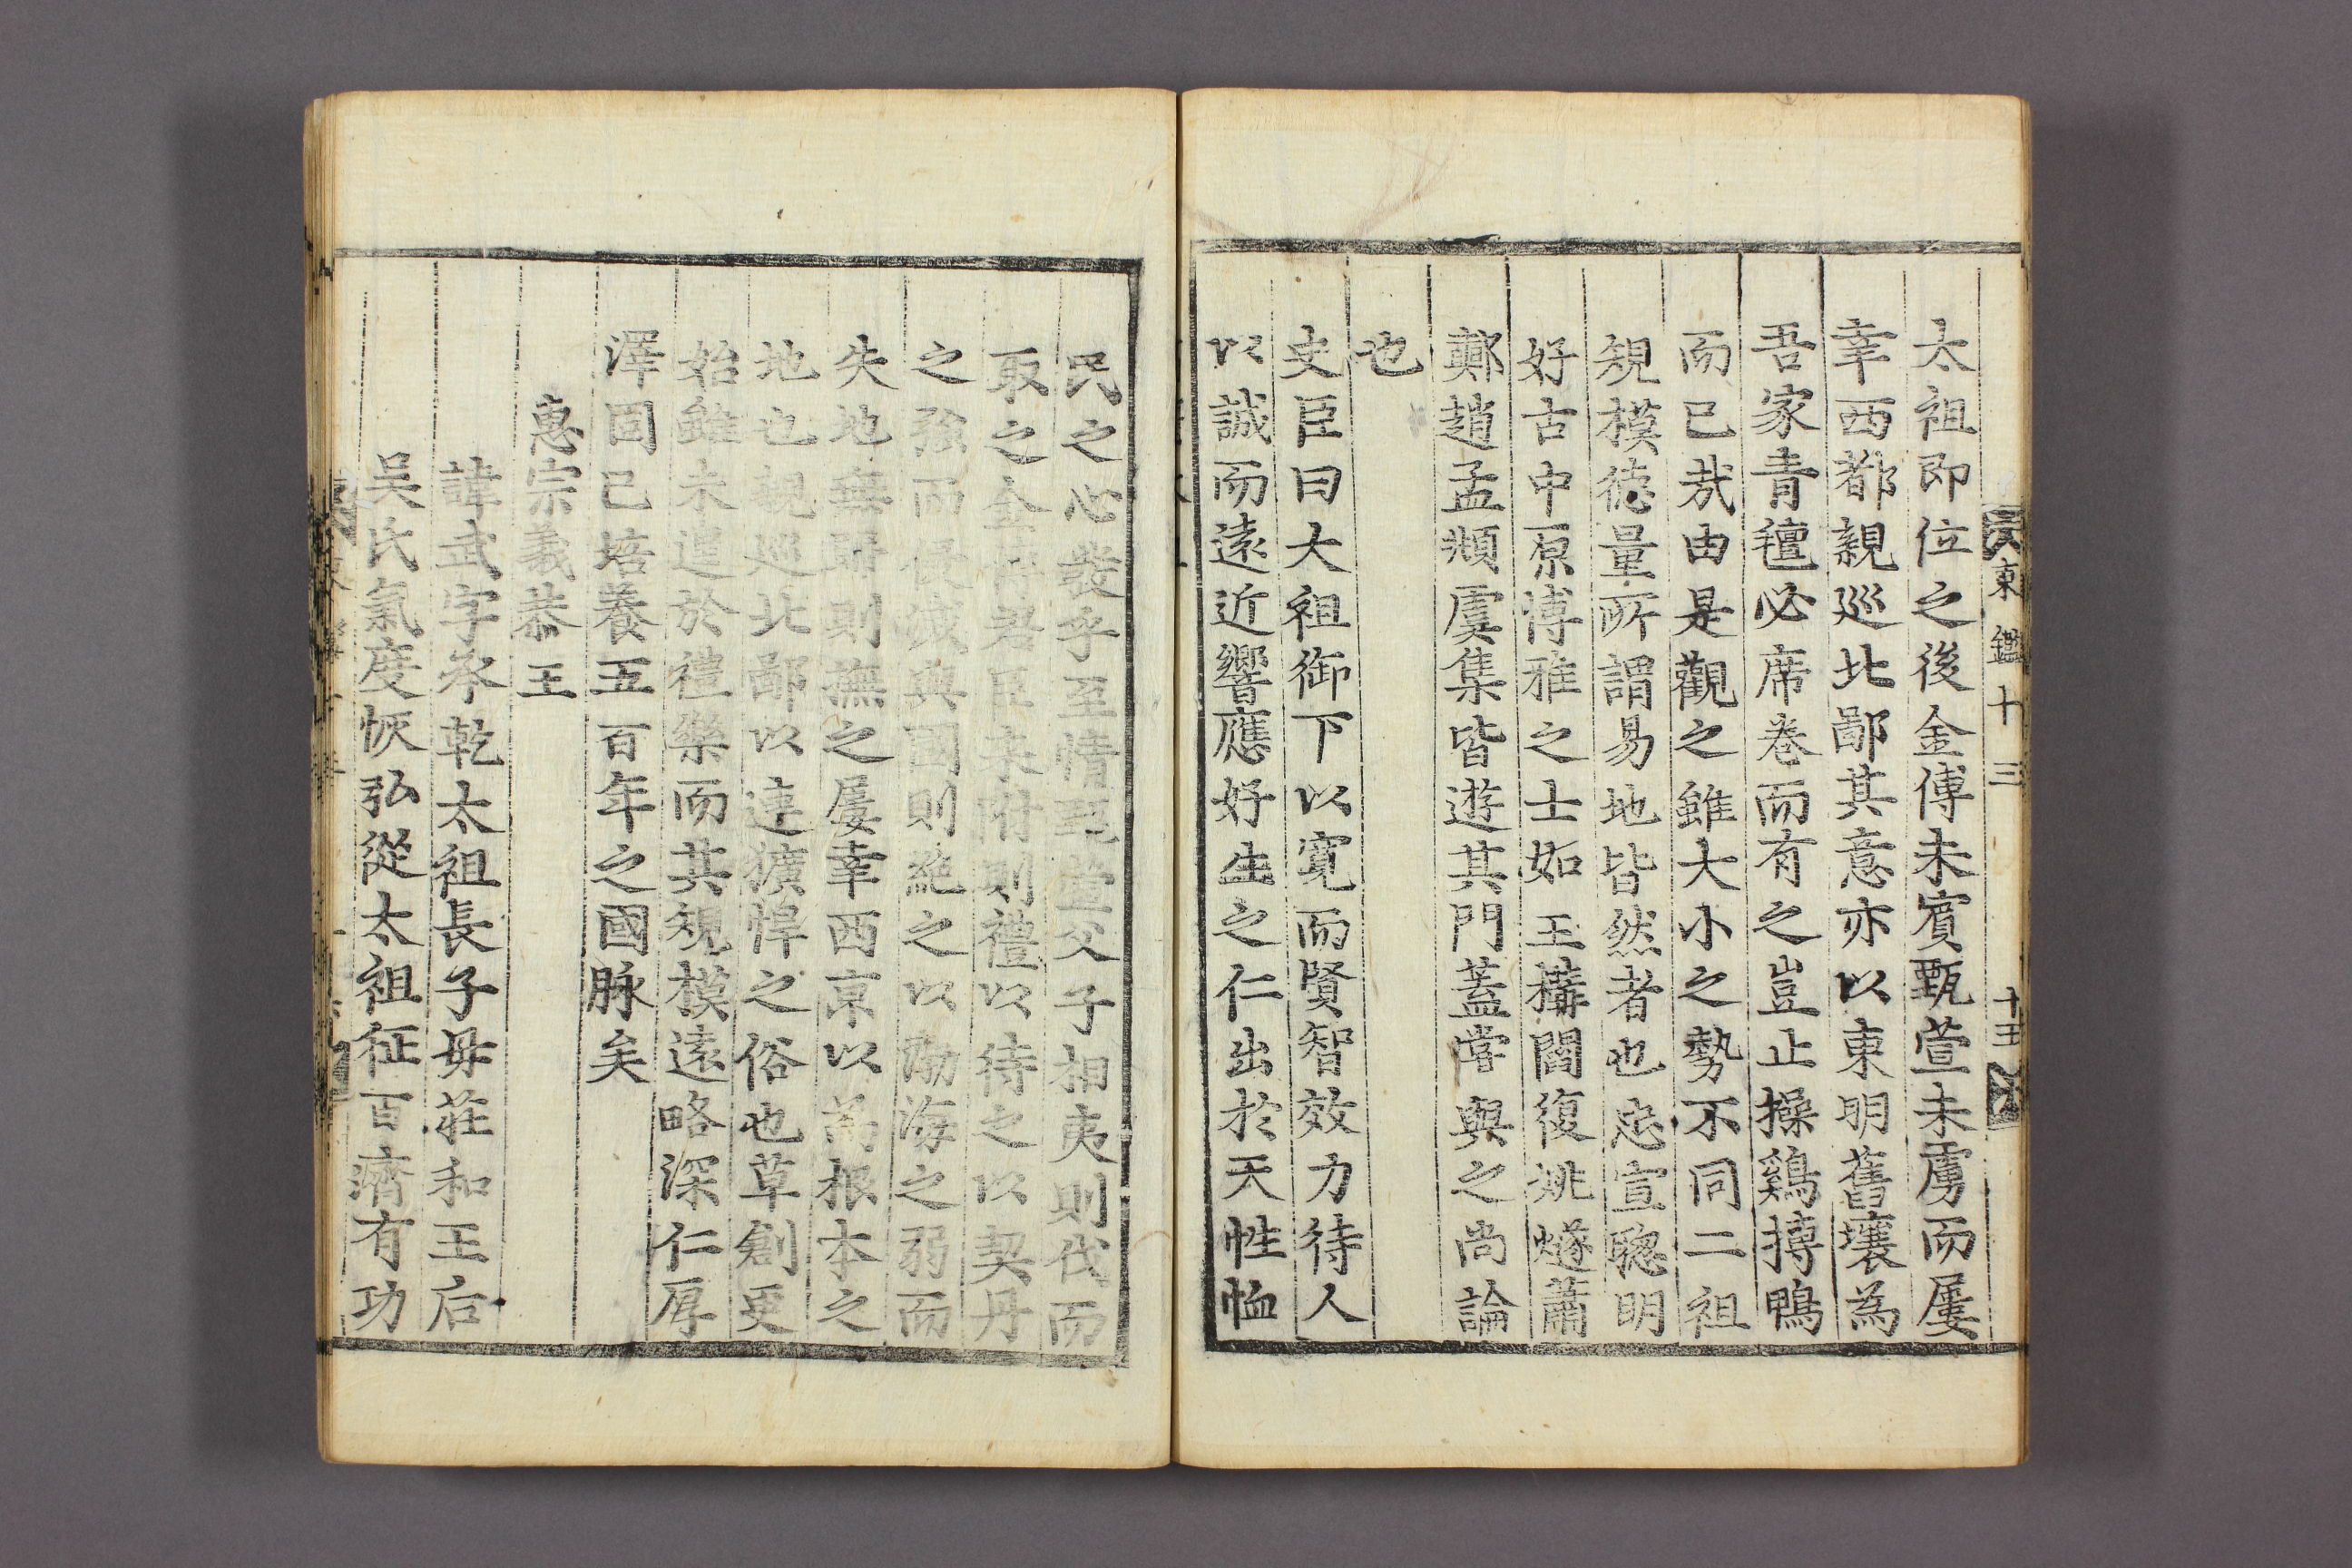 東鑑十三 十五
太祖即位之後金傅未賓甄萱未虜而屢
幸西都親廵北鄙其意亦以東明舊壤為
吾家青氊必席卷而有之豈止操鷄搏鴨
而已㦲由是觀之雖大小之勢不同二祖
規模德量所謂易地皆然者也忠宣聦明
好古中原博雅之士如王構閻復姚燧蕭
㪍趙孟頫虞集皆遊其門蓋甞與之尚論
也
史臣曰大祖御下以寬而賢智效力待人
以誠而遠近響應好生之仁出於天性恤
民之心發乎至情甄萱父子相夷則伐而
取之金傅君臣来附則禮以待之以契丹
之强而侵滅與國則絶之以渤海之弱而
失地無歸則撫之屢幸西京以爲根本之
地也親廵北鄙以連獷悍之俗也草創更
始雖未遑於禮樂而其規模遠略深仁厚
澤固已培養五百年之國脉矣
惠宗義恭王
諱武字承乾太祖長子母莊和王后
吴氏氣度恢弘從太祖征百濟有功